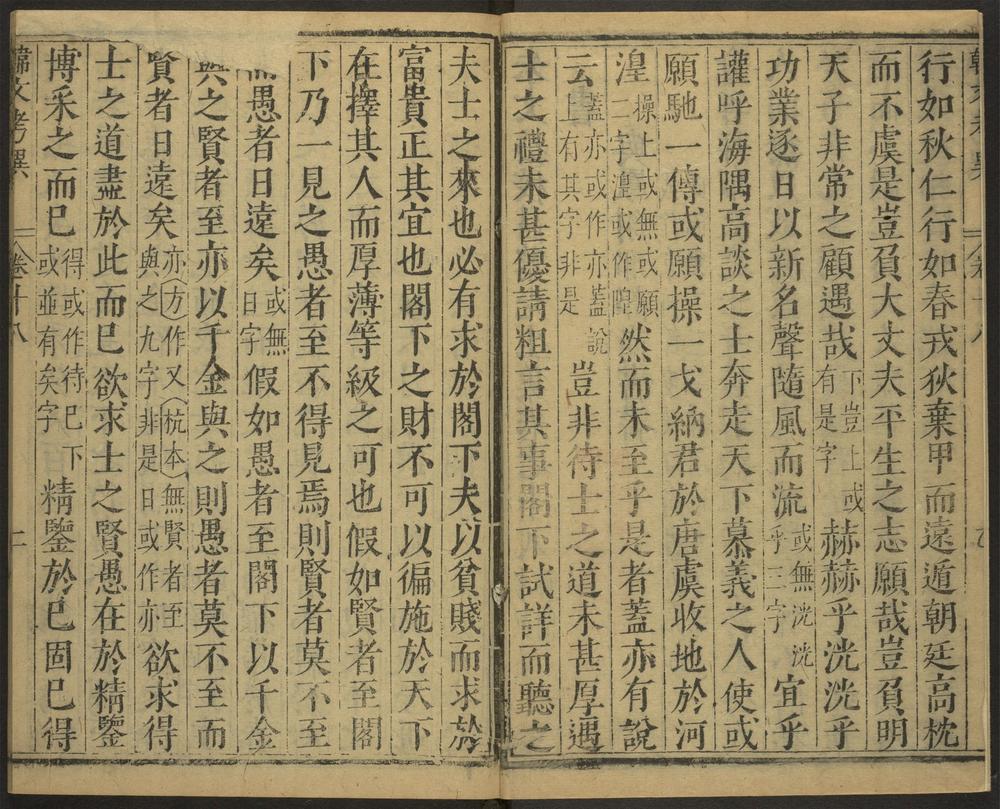 行如秋仁行如春戎狄棄甲而遠遁朝廷高枕
而不虞是豈負大丈夫平生之志願哉豈負明
天子非常之顧遇哉下豈上或有是字赫赫乎洸洸乎
功業逐日以新名聲隨風而流或無洸洸乎三字宜乎
讙呼海隅高談之士奔走天下慕義之人使或
願馳一傳或願操一戈納君於唐虞收地於河
湟操上或無或願二字湟或作隍然而未至乎是者蓋亦有說
云蓋亦或作亦蓋說上有其字非是豈非待士之道未甚厚遇
士之禮未甚優請粗言其事閣下試詳而聽之
夫士之來也必有求於閣下夫以貧賤而求於
富貴正其宜也閣下之財不可以徧施於天下
在擇其人而厚薄等級之可也假如賢者至閣
下乃一見之愚者至不得見焉則賢者莫不至
而愚者日遠矣或無日字假如愚者至閣下以千金
與之賢者至亦以千金與之則愚者莫不至而
賢者日遠矣亦方作又杭本無賢者至與之九字非是日或作亦欲求得
士之道盡於此而已欲求士之賢愚在於精鑒
博采之而已得或作待已下或並有矣字精鑒於已固已得
韓文考異 卷十八 二